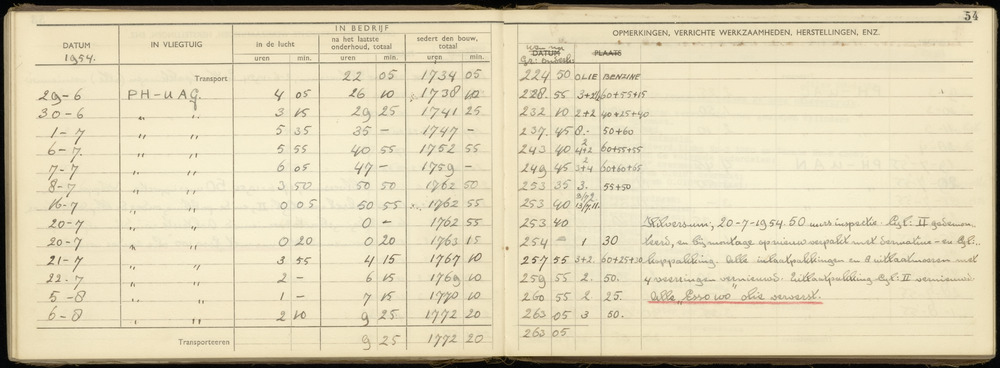 54
IN BEDRIJF
DATUM 1954. IN VLIEGTUIG in de lucht na het laatste onderhoud, totaal sedert den bouw, totaal OPMERKINGEN, VERRICHTE WERKZAAMHEDEN, HERSTELLINGEN, ENZ.
uren min. uren min. uren min. DATUM PLAATS
Transport 22 05 1734 05 224 50 OLIE BENZINE
29-6 PH-UAG 4 05 26 10 1738 10 228. 55 60+55+15
30-6 " " 3 15 29 25 1741 25 232 10 2+2 40+25+40
1-7 " " 5 35 35 - 1747 - 237. 45 8.- 50+60
6-7. " " 5 55 40 55 1752 55 243 40 4+2 60+55+55
7-7 " " 6 05 47 - 1759 - 249 45 3+4 60+60+65
8-7 " " 3 50 50 50 1762 50 253 35 3. 55+50
16-7 " " 0 05 50 55 1762 55 253 40
20-7 " " 0 - 1762 55 253 40 Hilversum, 20-7-1954. 50 uurs inspectie. Cyl: II gedemon-
20-7 " " 0 20 0 20 1763 15 254 - 1 30 teerd, en bij montage opnieuw verpakt met dermatine- en Cyl:
21-7 " " 3 55 4 15 1767 10 257 55 3+2. 60+25+30 koppakking. Alle inlaatpakkingen en 8 uitlaatmoeren met
22-7 " " 2 - 6 15 1769 10 259 55 2. 50. 4 veerringen vernieuwd. Uitlaatpakking Cyl: II vernieuwd.
5-8 " " 1 - 7 15 1770 10 260 55 2 25. Alle "Esso 100" olie ververst.
6-8 " " 2 10 9 25 1772 20 263 05 3 50.
Transporteeren 9 25 1772 20 263 05